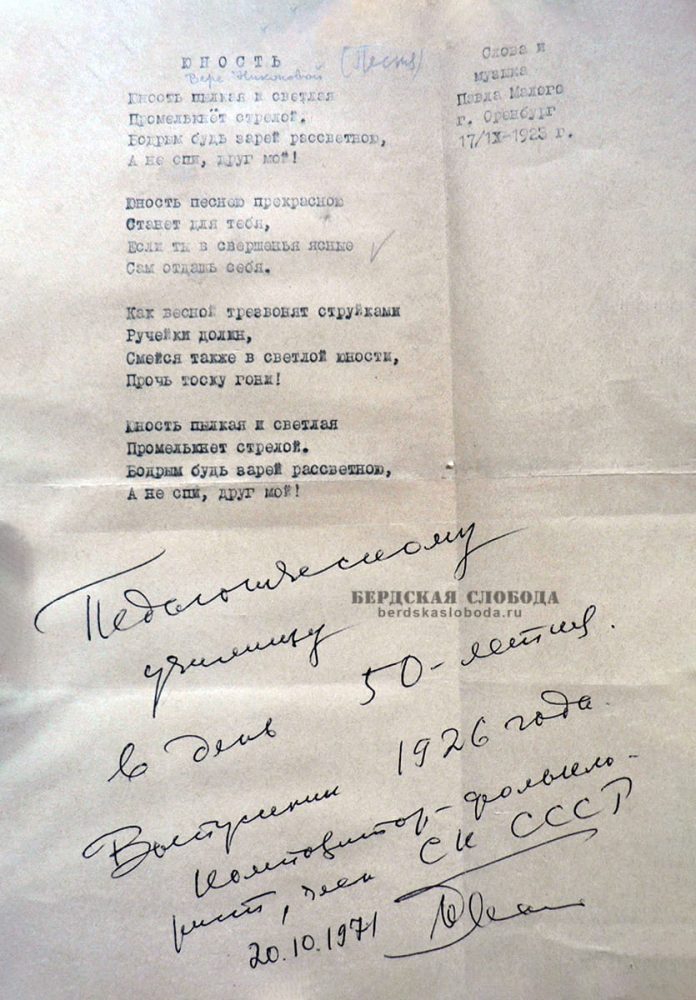 ЮНОСТЬ (Песня)
Вере Никоновой
Юность пылкая и светлая
Промелькнёт стрелой.
Бодрым будь зарей рассветною,
А не спи, друг мой!
Юность песною прекрасною
Станет для тебя,
Если ты в свершенья ясные
Сам отдашь себя.
Как весной трезвонят струйками
Ручейки долин,
Смейся также в светлой юности,
Прочь тоску гони!
Юность пылкая и светлая
Промелькнет стрелой.
Бодрым будь зарей рассветною,
А не спи, друг мой!
Слова и
музыка
Павла Малого
г. Оренбург
17/IX-1923 г.
Педагогическому
училищу
в день 50-летия.
Выпускник 1926 года.
Композитор-фолькло-
рист, член СК СССР
20.10.1971
БЕРДСКАЯ СЛОБОДА
berdskasloboda.ru